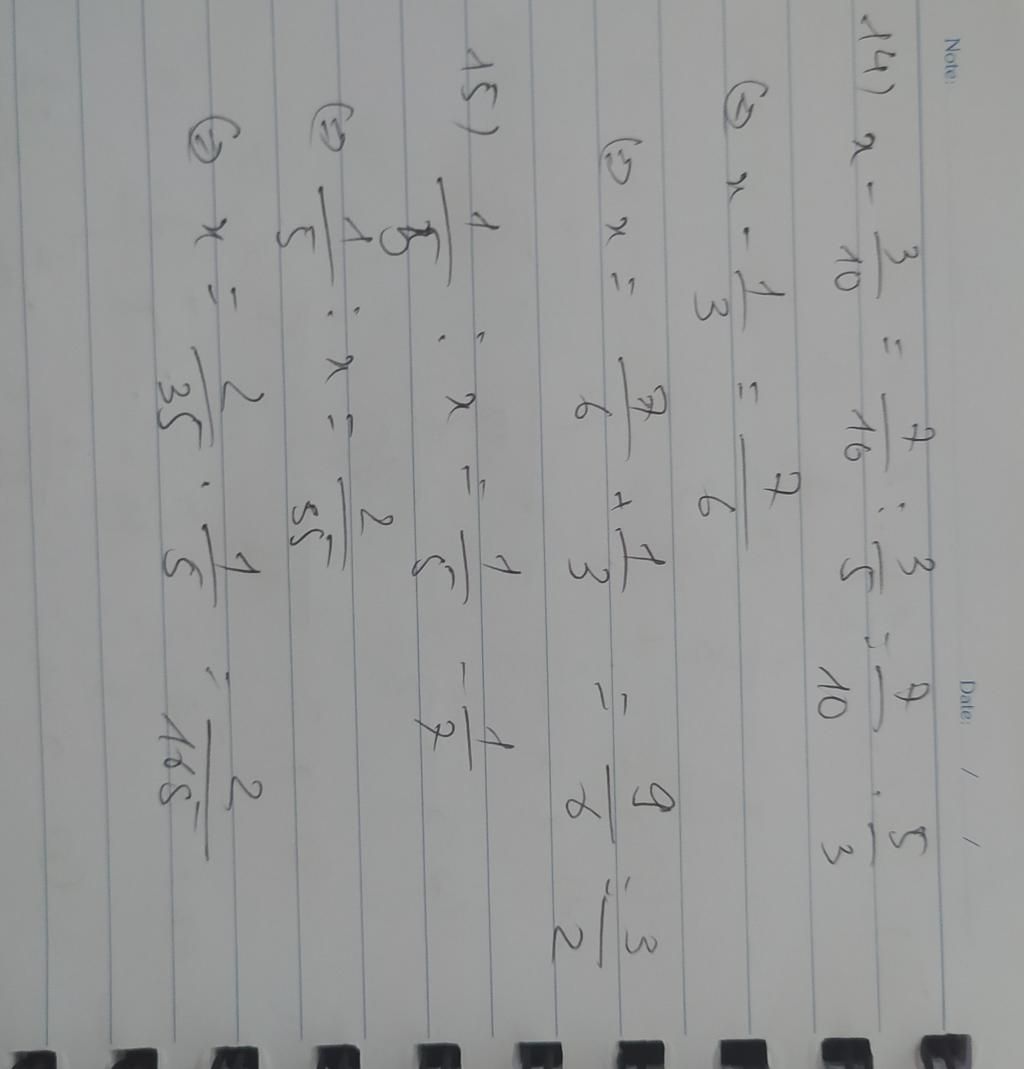 Note: Date: / /
14) x - 3/10 = 7/10 : 3/5 = 7/10 . 5/3
⇔ x - 1/3 = 7/6
⇔ x = 7/6 + 1/3 = 9/6 = 3/2
15) 1/5 : x = 1/5 - 1/7
⇔ 1/5 : x = 2/35
⇔ x = 2/35 . 1/5 = 2/165